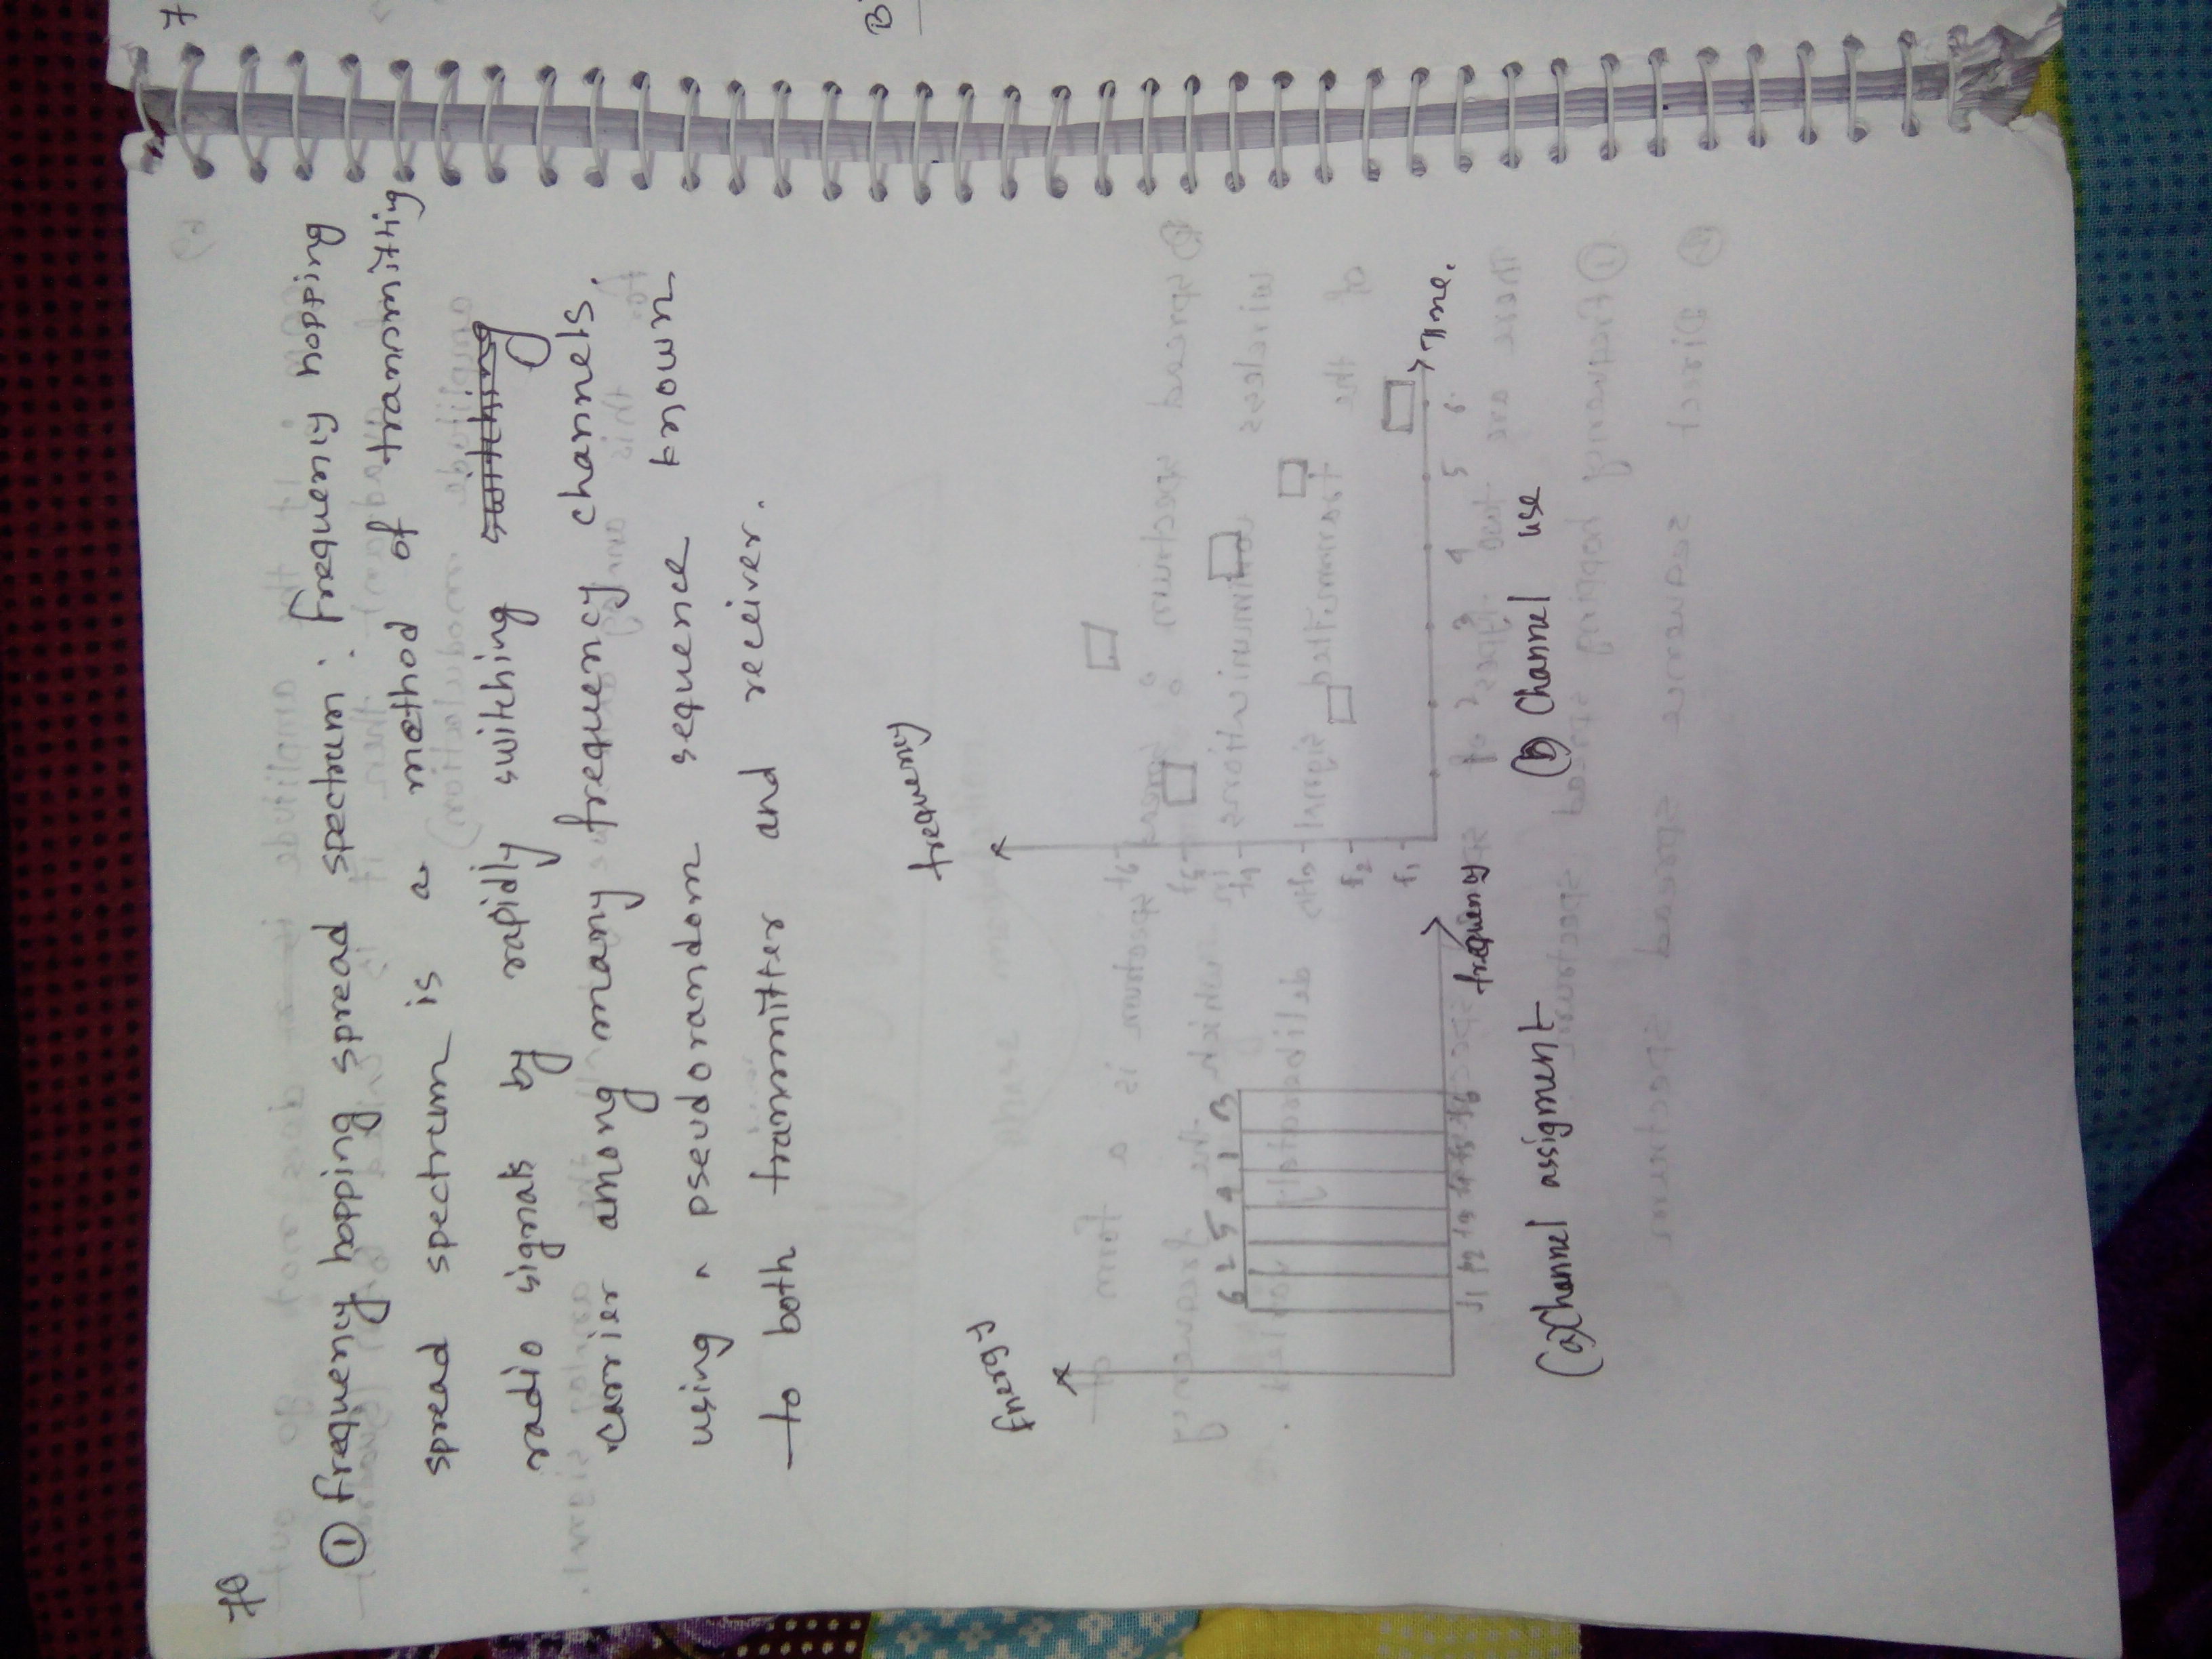 70
① frequency hopping spread spectrum : frequency hopping
spread spectrum is a method of transmitting
radio signals by rapidly switching
carrier among many frequency channels.
using a pseudorandom sequence known
to both transmitter and receiver.
Energy
6 2 5 4 1 3
f1 f2 f3 f4 f5 f6
frequency
(a) Channel assigment
frequency
f2
f1
1 2 3 4 5 6
Time.
(b) Channel use
7
B